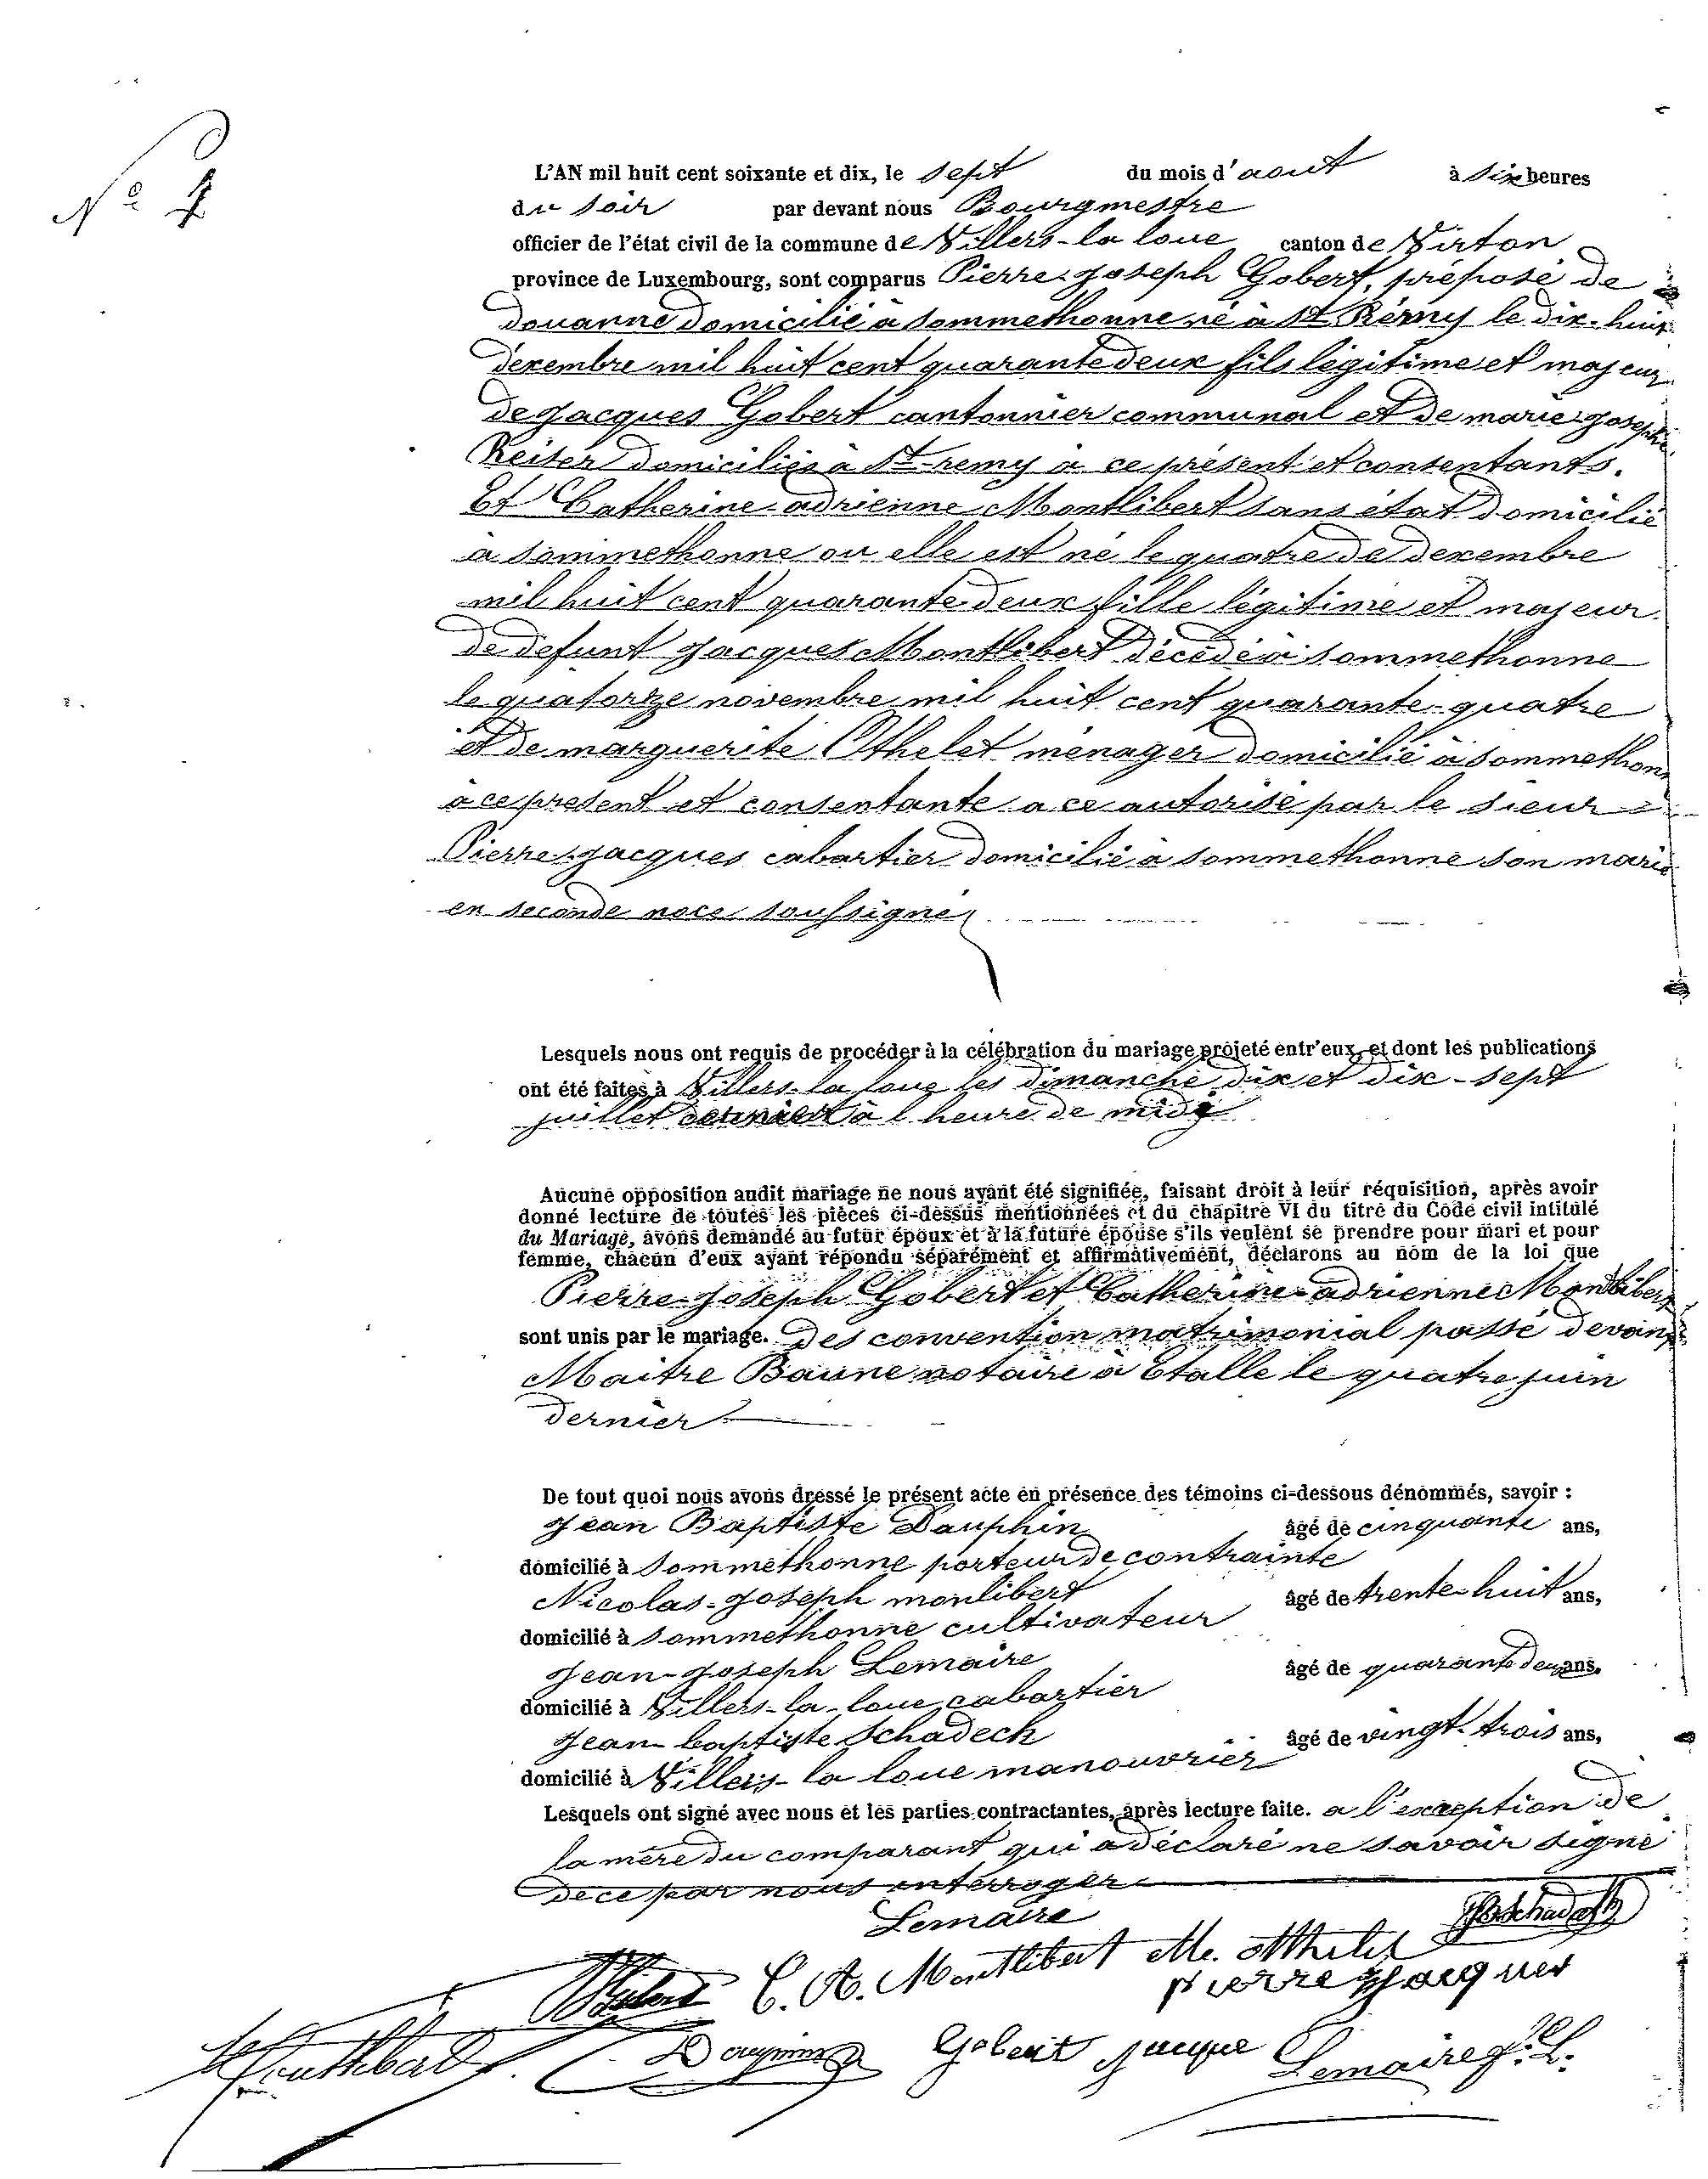 N° 7
L'AN mil huit cent soixante et dix, le sept du mois d'aout à six heures
du soir par devant nous Bourgmestre
officier de l'état civil de la commune de Villers-la loue canton de Virton
province de Luxembourg, sont comparus Pierre-Joseph Gobert, préposé de
douanne domicilié à sommethonne né à St Rémy le dix-huit
décembre mil huit cent quarante deux fils légitime et majeur
de Jacques Gobert cantonnier communal et de marie-Josephe
Reiser domiciliés à St-remy à ce présent et consentants.
Et Catherine-adrienne Montlibert sans état domicilié
à sommethonne ou elle est né le quatre de decembre
mil huit cent quarante deux fille légitime et majeur
de défunt Jacques Montlibert décédé à sommethonne
le quatorze novembre mil huit cent quarante-quatre
et de marguerite Othelet ménager domicilié à sommethonne
à ce présent et consentante a ce autorisé par le sieur
Pierre-Jacques cabartier domicilié à sommethonne son marie
en seconde noce soussigné
Lesquels nous ont requis de procéder à la célébration du mariage projeté entr'eux, et dont les publications
ont été faites à Villers-la loue les dimanche dix et dix-sept
juillet dernier à l heure de midi
Aucune opposition audit mariage ne nous ayant été signifiée, faisant droit à leur réquisition, après avoir
donné lecture de toutes les pièces ci-dessus mentionnées et du chapitre VI du titre du Code civil intitulé
du Mariage, avons demandé au futur époux et à la future épouse s'ils veulent se prendre pour mari et pour
femme, chacun d'eux ayant répondu séparément et affirmativement, déclarons au nom de la loi que
Pierre-Joseph Gobert et Catherine-adrienne Montlibert
sont unis par le mariage. des convention matrimonial passé devant
Maitre Baune notaire à Etalle le quatre juin
dernier
De tout quoi nous avons dressé le présent acte en présence des témoins ci-dessous dénommés, savoir :
Jean Baptiste Dauphin âgé de cinquante ans,
domicilié à sommethonne porteur de contrainte
Nicolas-Joseph monlibert âgé de trente-huit ans,
domicilié à sommethonne cultivateur
Jean-Joseph Lemaire âgé de quarante deux ans.
domicilié à Villers-la-loue cabartier
Jean-baptiste Schadeck âgé de vingt-trois ans,
domicilié à Villers-la loue manouvrier
Lesquels ont signé avec nous et les parties contractantes, après lecture faite. a l'exception de
la mère du comparant qui a déclaré ne savoir signé
de ce par nous interroger
Lemaire JBSchadeck
C. A. Montlibert M. Othelet
pierre Jacques
Gobert Jacque Lemaire J. L.